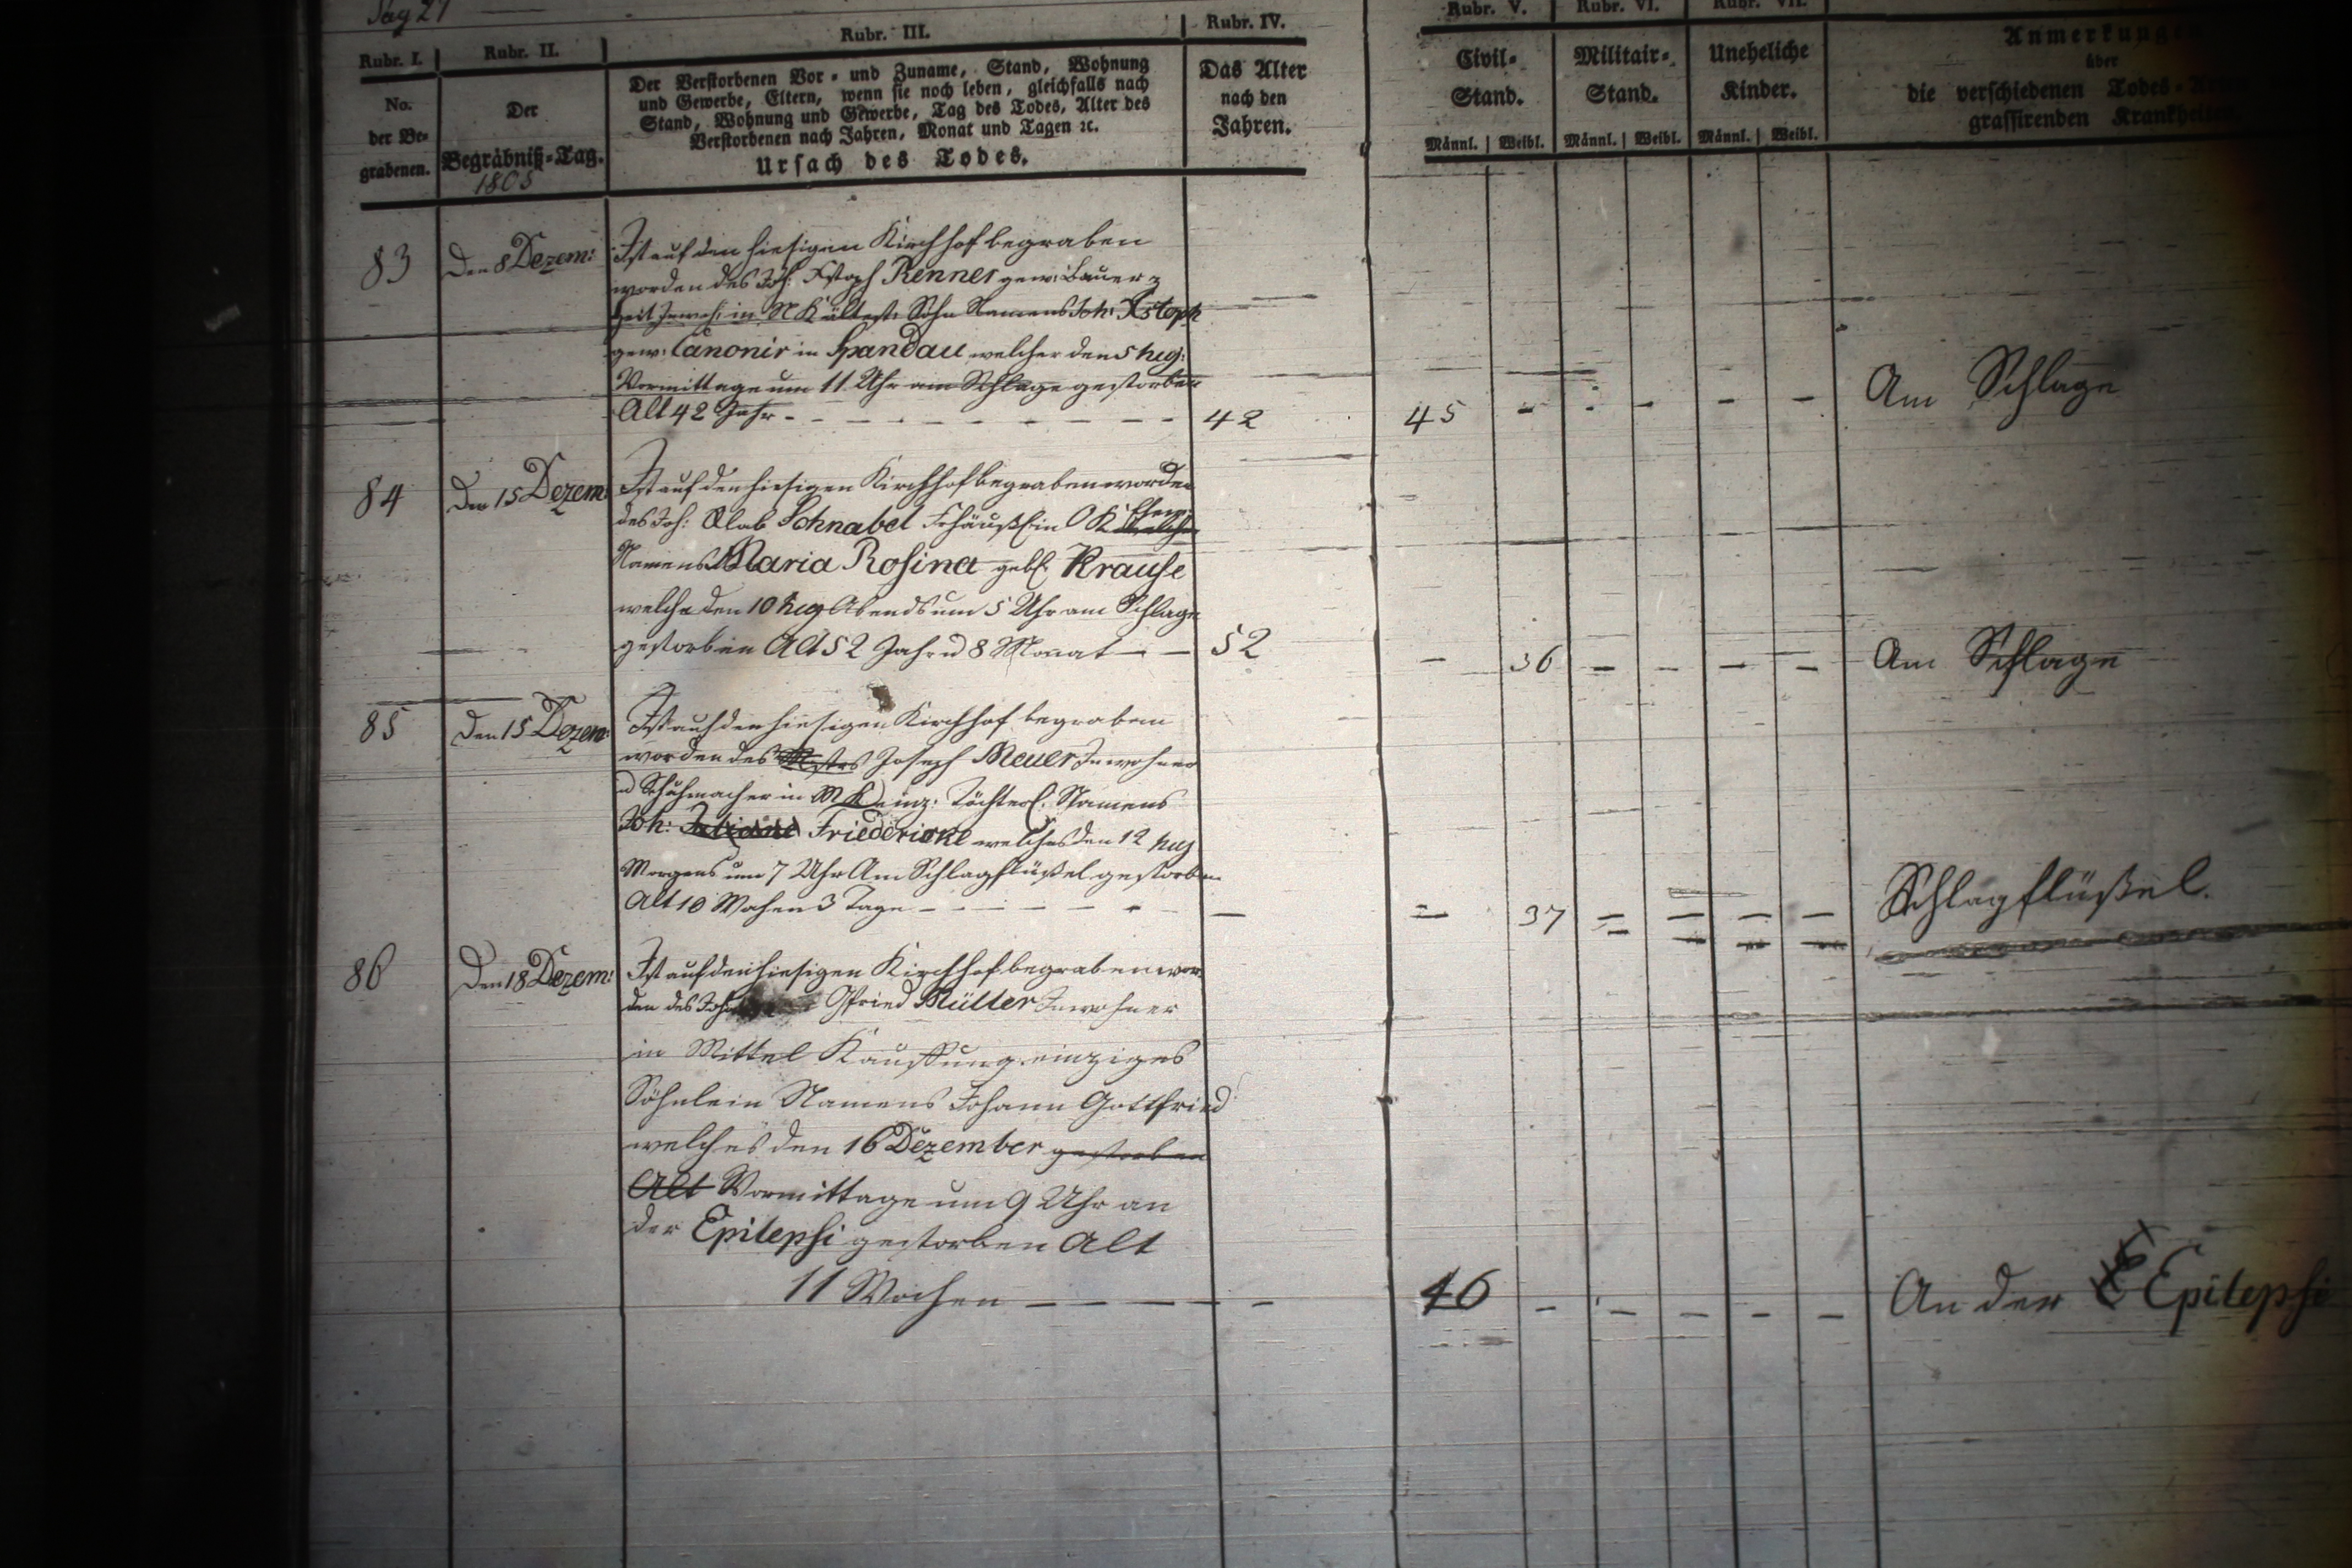 Pag 27
Rubr. I.
Rubr. II.
Rubr. III.
Rubr. IV.
Rubr. V.
Rubr. VI.
Rubr. VII.
No.
der Be-
grabenen.
Der
Begräbniß-Tag.
1805
Der Verstorbenen Vor- und Zuname, Stand, Wohnung
und Gewerbe, Eltern, wenn sie noch leben, gleichfalls nach
Stand, Wohnung und Gewerbe, Tag des Todes, Alter des
Verstorbenen nach Jahren, Monat und Tagen ꝛc.
Ursach des Todes.
Das Alter
nach den
Jahren.
Civil-
Stand.
Männl. | Weibl.
Militair-
Stand.
Männl. | Weibl.
Uneheliche
Kinder.
Männl. | Weibl.
Anmerkungen
über
die verschiedenen Todes-
grassirenden Krankheiten.
83
Den 8 Dezem:
Ist auf den hiesigen Kirchhof begraben
worden des Joh: Xstoph Renner gew: Bauer z
Zeit Inwoh: in N K ältest: Sohn Namens Joh: Xstoph
gew: Canonir in Spandau welcher den 5 huj:
Vormittage um 11 Uhr am Schlage gestorben
Alt 42 Jahr - - - - - - - - - 42 45 - - - - - Am Schlage
84
Den 15 Dezem:
Ist auf den hiesigen Kirchhof begraben worden
des Joh: Schnabel Frhäußl: in O K Ehew:
Namens Maria Rosina geb: Krause
welche den 10 huj Abends um 5 Uhr am Schlage
gestorben Alt 52 Jahr u 8 Monat - - 52 - 36 - - - - Am Schlage
85
Den 15 Dezem:
Ist auf den hiesigen Kirchhof begraben
worden des Mstrs Joseph Meuer Inwohner
u Schuhmacher in M K einz: Töchterl: Namens
Joh: Juliane Friedericke welches den 12 huj
Morgens um 7 Uhr Am Schlagflüßel gestorben
Alt 10 Wochen 3 Tage - - - - - - - - 37 - - - - Schlagflüßel.
86
Den 18 Dezem:
Ist auf den hiesigen Kirchhof begraben wor
den des Joh: Gfried Müller Inwohner
in Mittel Kauffung einziges
Söhnlein Namens Johann Gottfried
welches den 16 Dezember gestorben
Alt Vormittage um 9 Uhr an
der Epilepsi gestorben Alt
11 Wochen - - - - - 46 - - - - - An der E Epilepsi